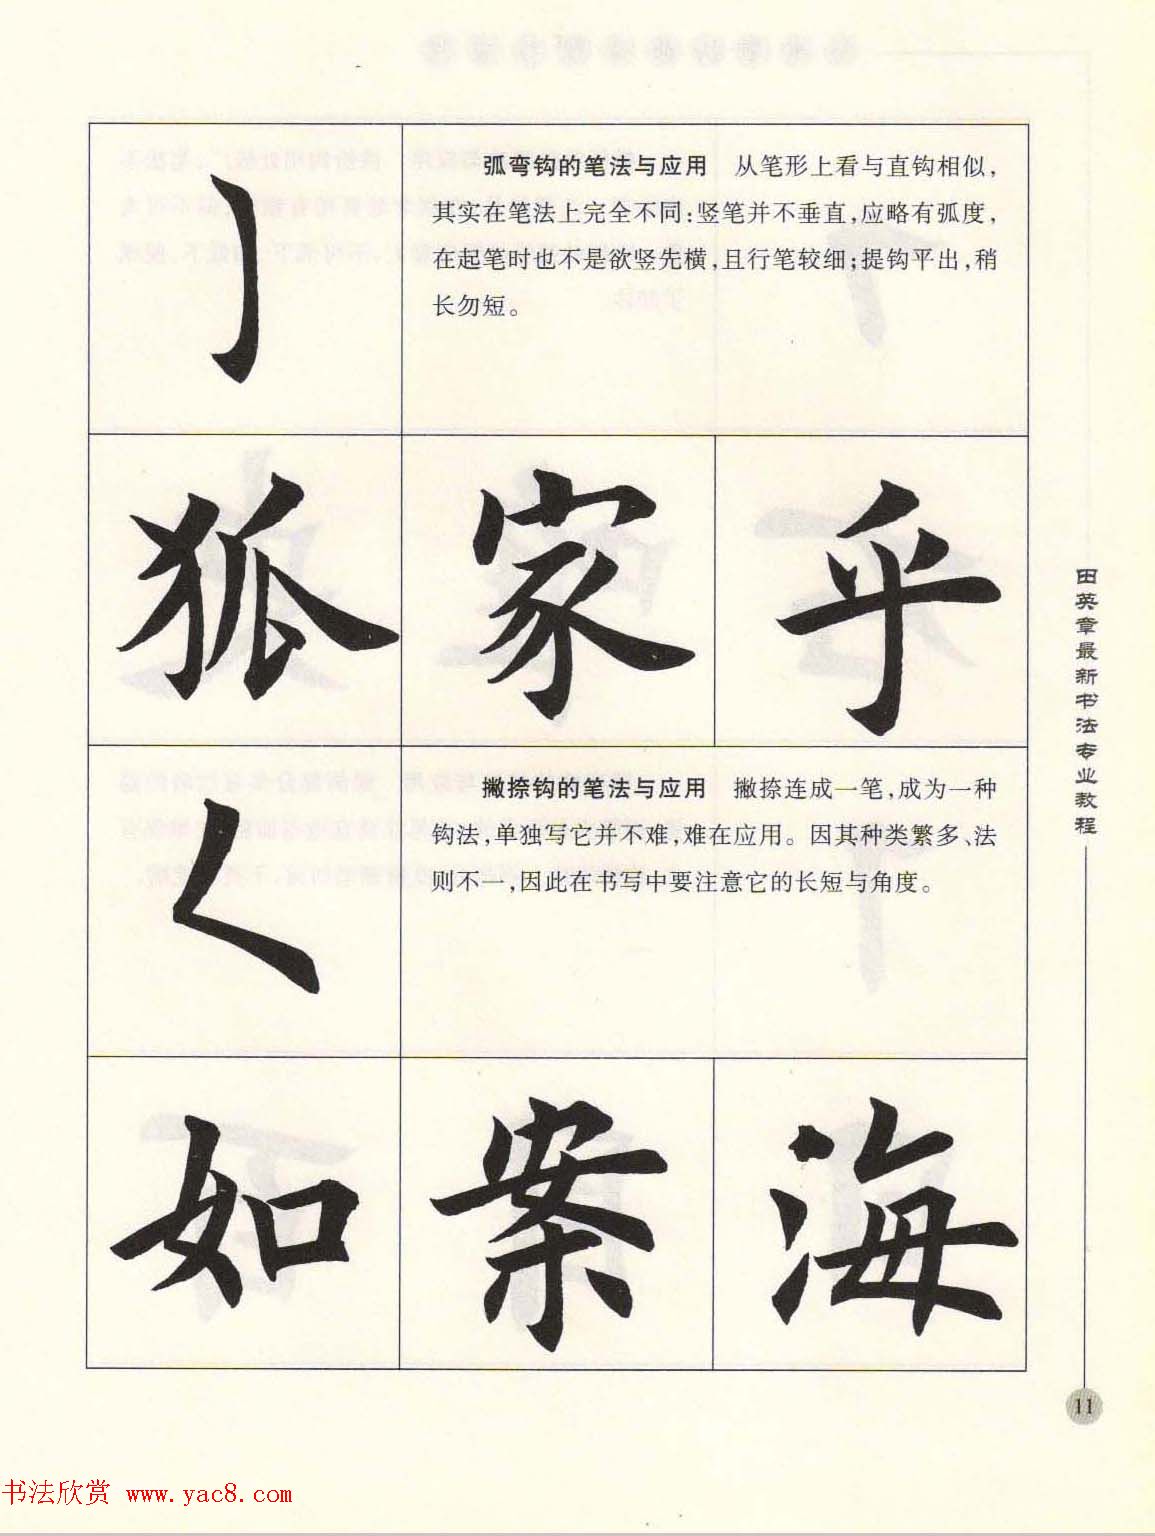 弧弯钩的笔法与应用 从笔形上看与直钩相似,
其实在笔法上完全不同:竖笔并不垂直,应略有弧度,
在起笔时也不是欲竖先横,且行笔较细;提钩平出,稍
长勿短。
狐 家 乎
撇捺钩的笔法与应用 撇捺连成一笔,成为一种
钩法,单独写它并不难,难在应用。因其种类繁多、法
则不一,因此在书写中要注意它的长短与角度。
如 案 海
田英章最新书法专业教程
11
书法欣赏 www.yac8.com